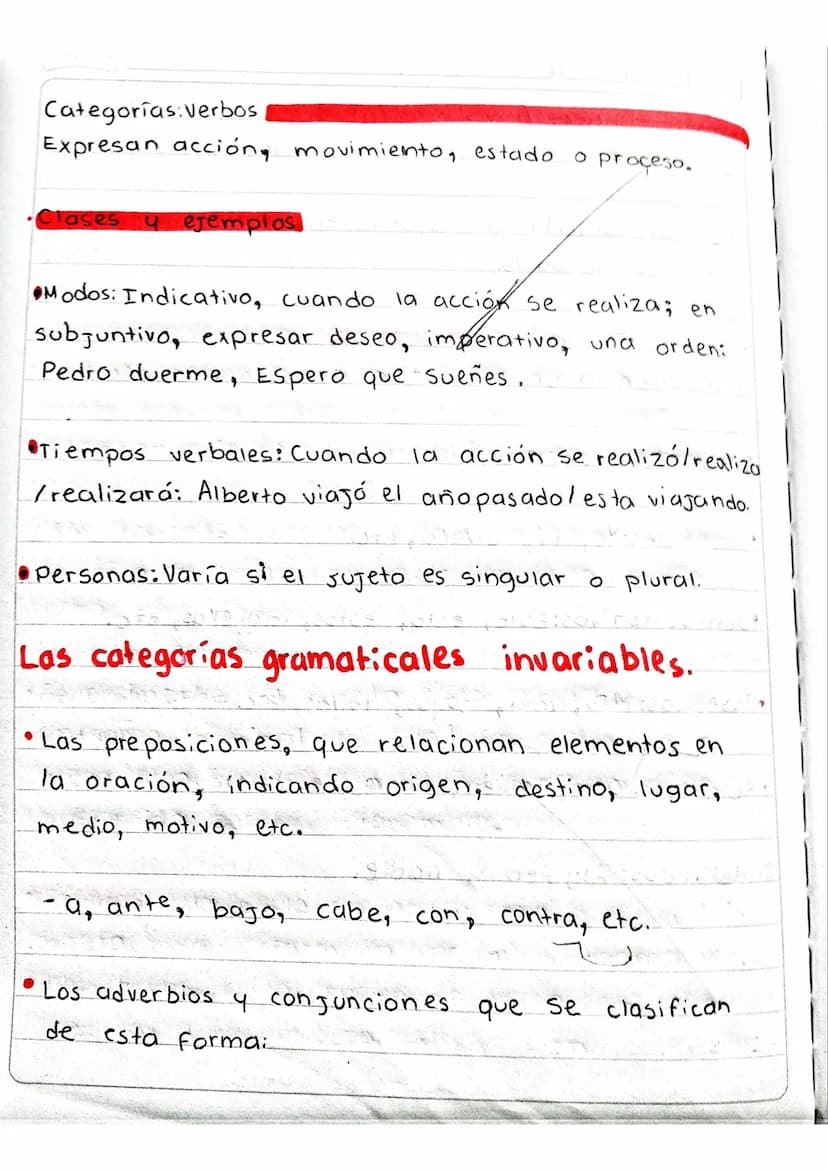 Categorías: verbos
Expresan acción, movimiento, estado o proceso.
Clases y ejemplos
Modos: Indicativo, cuando la acción se realiza; en
subjuntivo, expresar deseo, imperativo, una orden:
Pedro duerme, Espero que sueñes.
Tiempos verbales: Cuando la acción se realizó/realiza
/realizará: Alberto viajó el año pasado/esta viajando.
Personas: Varía si el sujeto es singular o plural.
Las categorías gramaticales invariables.
Las preposiciones, que relacionan elementos en
la oración, indicando origen, destino, lugar,
medio, motivo, etc.
- a, ante, bajo, cabe, con, contra, etc.
Los adverbios y conjunciones que se clasifican
de esta forma: